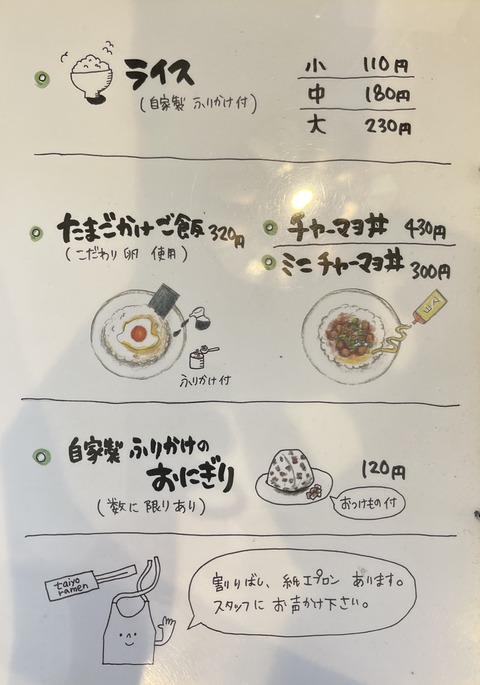 ライス
(自家製 ふりかけ付)
小 110円
中 180円
大 230円
たまごかけご飯 320円
(こだわり卵 使用)
チャーマヨ丼 430円
ミニチャーマヨ丼 300円
ふりかけ付
自家製 ふりかけの
おにぎり
120円
(数に限りあり)
おつけもの付
taiyo
ramen
割りばし、紙エプロン あります。
スタッフに お声かけ下さい。